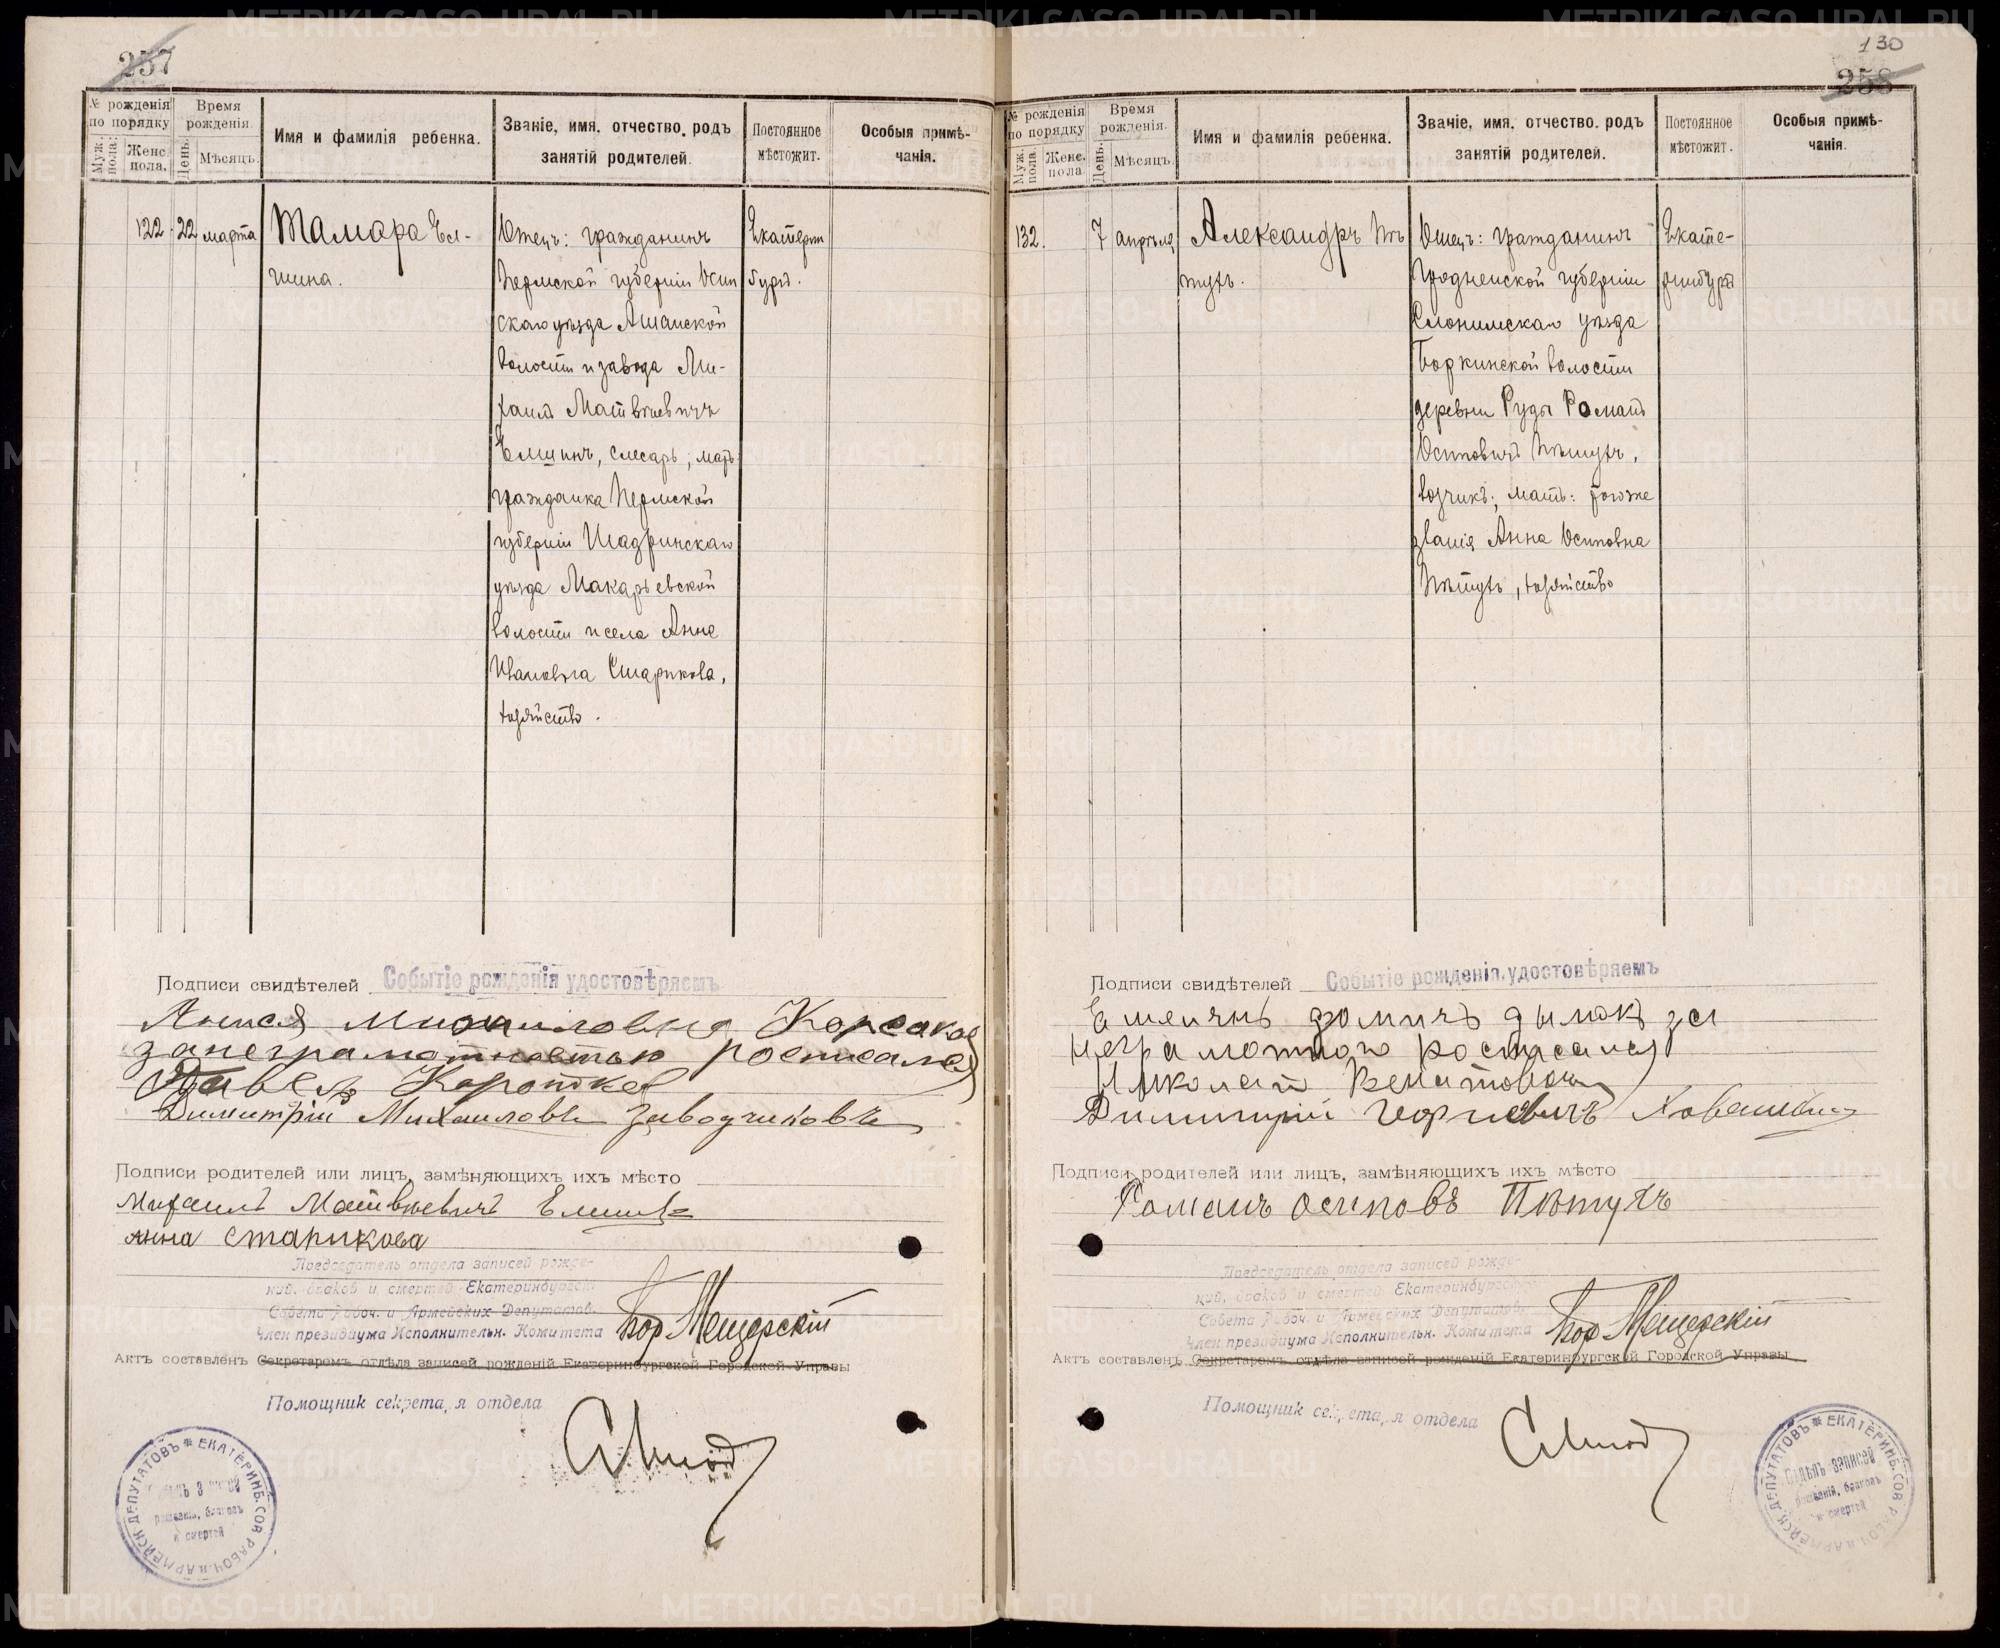 257
№ рожденія по порядку
Муж. пола.
Женс. пола.
Время рожденія.
День.
Мѣсяцъ.
Имя и фамилія ребенка.
Званіе, имя, отчество, родъ занятій родителей.
Постоянное мѣстожит.
Особыя примѣчанія.
122
22
марта
Тамара Ел-
шина.
Отецъ: гражданинъ
Пермской губерніи Осин
скаго уѣзда Ашапской
волости и завода Ми-
хаилъ Матвѣевичъ
Елшинъ, слесарь; мать
гражданка Пермской
губерніи Шадринскаго
уѣзда Макарьевской
волости и села Анна
Ивановна Старикова,
хозяйство.
Екатерин
бургъ.
Подписи свидѣтелей
Событіе рожденія удостовѣряемъ
Михаиловна
занеграмотностью росписался
Павелъ
Димитрій Михаиловъ Заводчиковъ
Подписи родителей или лицъ, замѣняющихъ ихъ мѣсто
Михаилъ Матвѣевичъ Елшинъ
Анна Старикова
Председатель отдела записей рожде-
ний, браков и смертей Екатеринбургск.
Совета Рабоч. и Армейских Депутатов.
Член президиума Исполнительн. Комитета
Мещерскій
Актъ составленъ Секретаремъ отдѣла записей рожденій Екатеринбургской Городской Управы
Помощник секрета, я отдела
ЕКАТЕРИНБ. СОВ. РАБОЧ. И АРМЕЙСК. ДЕПУТАТОВЪ
рожденія, браковъ
и смертей
130
258
№ рожденія по порядку
Муж. пола.
Женс. пола
Время рожденія.
День.
Мѣсяцъ.
Имя и фамилія ребенка.
Званіе, имя, отчество, родъ занятій родителей.
Постоянное мѣстожит.
Особыя примѣчанія.
132.
7
апрѣля
Александръ Пѣ
тухъ.
Отецъ: гражданинъ
Гродненской губерніи
Слонимскаго уѣзда
Боркинской волости
деревни Руды Романъ
Осиповичъ Пѣтухъ,
возчикъ; мать: того же
званія Анна Осиповна
Пѣтухъ, хозяйство
Екате-
ринбургъ
Подписи свидѣтелей
Событіе рожденія удостовѣряемъ
Фомичъ Дымокъ за
неграмотного росписался
Николай
Димитрій
Подписи родителей или лицъ, замѣняющихъ ихъ мѣсто
Романъ Осиповъ Пѣтухъ
Председатель отдела записей рожде-
ний, браков и смертей Екатеринбургск.
Совета Рабоч. и Армейских Депутатов.
Член президиума Исполнительн. Комитета
Мещерскій
Актъ составленъ Секретаремъ отдѣла записей рожденій Екатеринбургской Городской Управы
Помощник секрета, я отдела
ЕКАТЕРИНБ. СОВ. РАБОЧ. И АРМЕЙСК. ДЕПУТАТОВЪ
Отдѣлъ записей
рожденія, браковъ
и смертей
METRIKI.GASO-URAL.RU